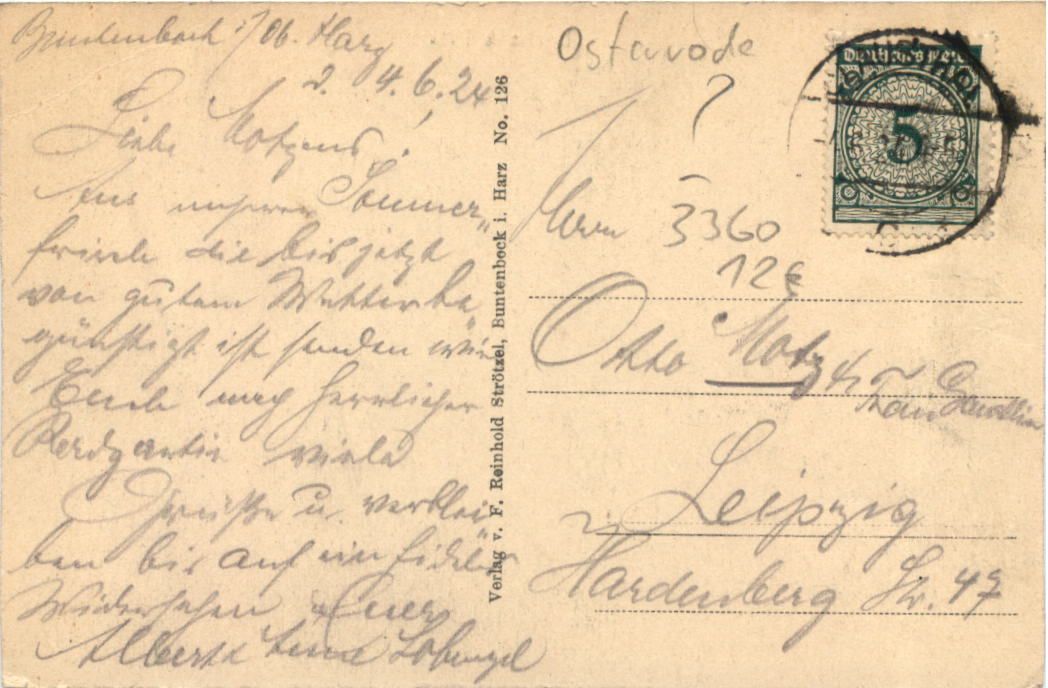 Buntenbock i/Ob. Harz
2. 4.6.24
Liebe Motzens!
Aus unserer Sommer„
frische die bis jetzt
von gutem Wetter be
günstigt ist senden wir
Euch nach herrlicher
Radpartie viele
Grüße u. verblei
ben bis auf ein fideles
Wiedersehen Euer
Albert Lena
Verlag v. F. Reinhold Strötzel, Buntenbock i. Harz No. 126
Osterode
?
5
Herrn
3360
12€
Otto Motz
Frau
Leipzig
Hardenberg Str. 47